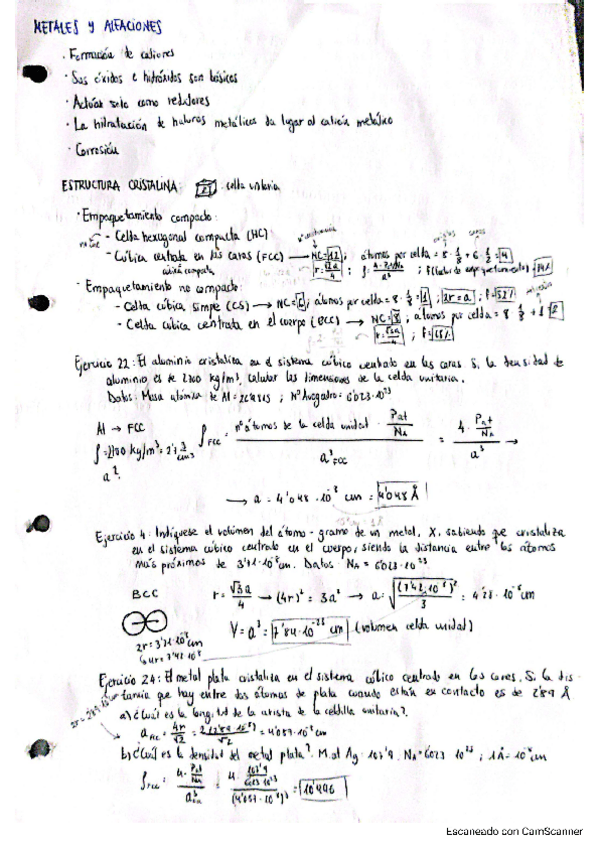 METALES Y ALEACIONES
· Formación de cationes
· Sus óxidos e hidróxidos son básicos
· Actúan solo como reductores
· La hidratación de haluros metálicos da lugar al catión metálico
· Corrosión
ESTRUCTURA CRISTALINA: celda unitaria
· Empaquetamiento compacto:
- Celda hexagonal compacta (HC)
- Cúbica centrada en las caras (FCC) → NC=12; átomos por celda = 8 · 1/8 + 6 · 1/2 = 4
cúbica compacta
· Empaquetamiento no compacto:
- Celda cúbica simple (CS) → NC=6; átomos por celda = 8 · 1/8 = 1; 2r = a; F=52%
- Celda cúbica centrada en el cuerpo (BCC) → NC=8; átomos por celda = 8 · 1/8 + 1 = 2
r = √3a/4; F=68%
Ejercicio 22: El aluminio cristaliza en el sistema cúbico centrado en las caras. Si la densidad de
aluminio es de 2700 kg/m³, calcular las dimensiones de la celda unitaria.
Datos: Masa atómica de Al = ; Nº Avogadro = 6023·10²³
Al → FCC
ρ = 2700 kg/m³ = 2'7 g/cm³
a?
ρFCC = nº átomos de la celda unidad · Pat/NA / a³FCC = 4 · Pat/NA / a³ →
→ a = 4'048 · 10⁻⁸ cm = 4'048 Å
Ejercicio 4: Indíquese el volumen del átomo-gramo de un metal, X, sabiendo que cristaliza
en el sistema cúbico centrado en el cuerpo, siendo la distancia entre los átomos
más próximos de 3'71·10⁻⁸ cm. Datos: NA = 6023·10²³
BCC r = √3a/4 → (4r)² = 3a² → a = √((7'42·10⁻⁸)²/3) = 4'28·10⁻⁸ cm
2r = 3'71·10⁻⁸ cm
4r = 7'42·10⁻⁸
V = a³ = 7'84·10⁻²³ cm (volumen celda unidad)
Ejercicio 24: El metal plata cristaliza en el sistema cúbico centrado en las caras. Si la dis-
tancia que hay entre dos átomos de plata cuando están en contacto es de 2'89 Å
a) ¿Cuál es la longitud de la arista de la celdilla unitaria?
aFCC = 4r/√2 = 2(2'89·10⁻⁸)/√2 = 4'087·10⁻⁸ cm
b) ¿Cuál es la densidad del metal plata? M.at Ag: 107'9, NA = 6023·10²³; 1Å = 10⁻⁸ cm
ρFCC = 4 · Pat/NA / a³FCC = 4 · 107'9/6023·10²³ / (4'087·10⁻⁸)³ = 10'496
Escaneado con CamScanner